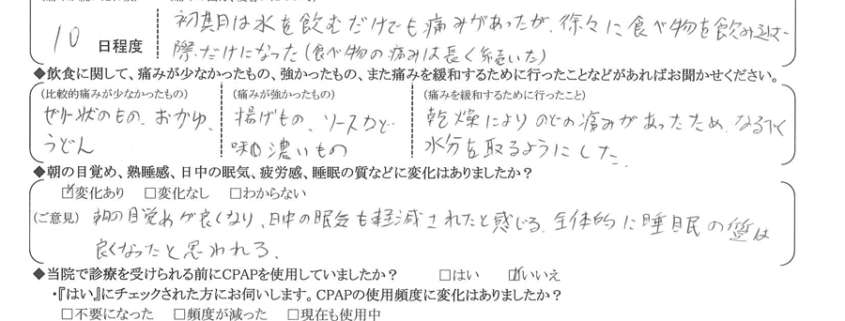 10 日程度
初期は水を飲むだけでも痛みがあったが、徐々に食べ物を飲み込む
際だけになった(食べ物の痛みは長く続いた)
◆飲食に関して、痛みが少なかったもの、強かったもの、また痛みを緩和するために行ったことなどがあればお聞かせください。
(比較的痛みが少なかったもの)
ゼリー状のもの、おかゆ、
うどん
(痛みが強かったもの)
揚げもの、ソースなど
味の濃いもの
(痛みを緩和するために行ったこと)
乾燥によりのどの痛みがあったため、なるべく
水分を取るようにした。
◆朝の目覚め、熟睡感、日中の眠気、疲労感、睡眠の質などに変化はありましたか?
☑変化あり □変化なし □わからない
(ご意見) 朝の目覚めが良くなり、日中の眠気も軽減されたと感じる。全体的に睡眠の質は
良くなったと思われる。
◆当院で診療を受けられる前にCPAPを使用していましたか? □はい ☑いいえ
・『はい』にチェックされた方にお伺いします。CPAPの使用頻度に変化はありましたか?
□不要になった □頻度が減った □現在も使用中